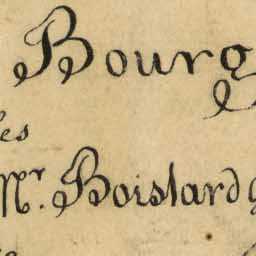 Bourg
les
Mr. Boislard